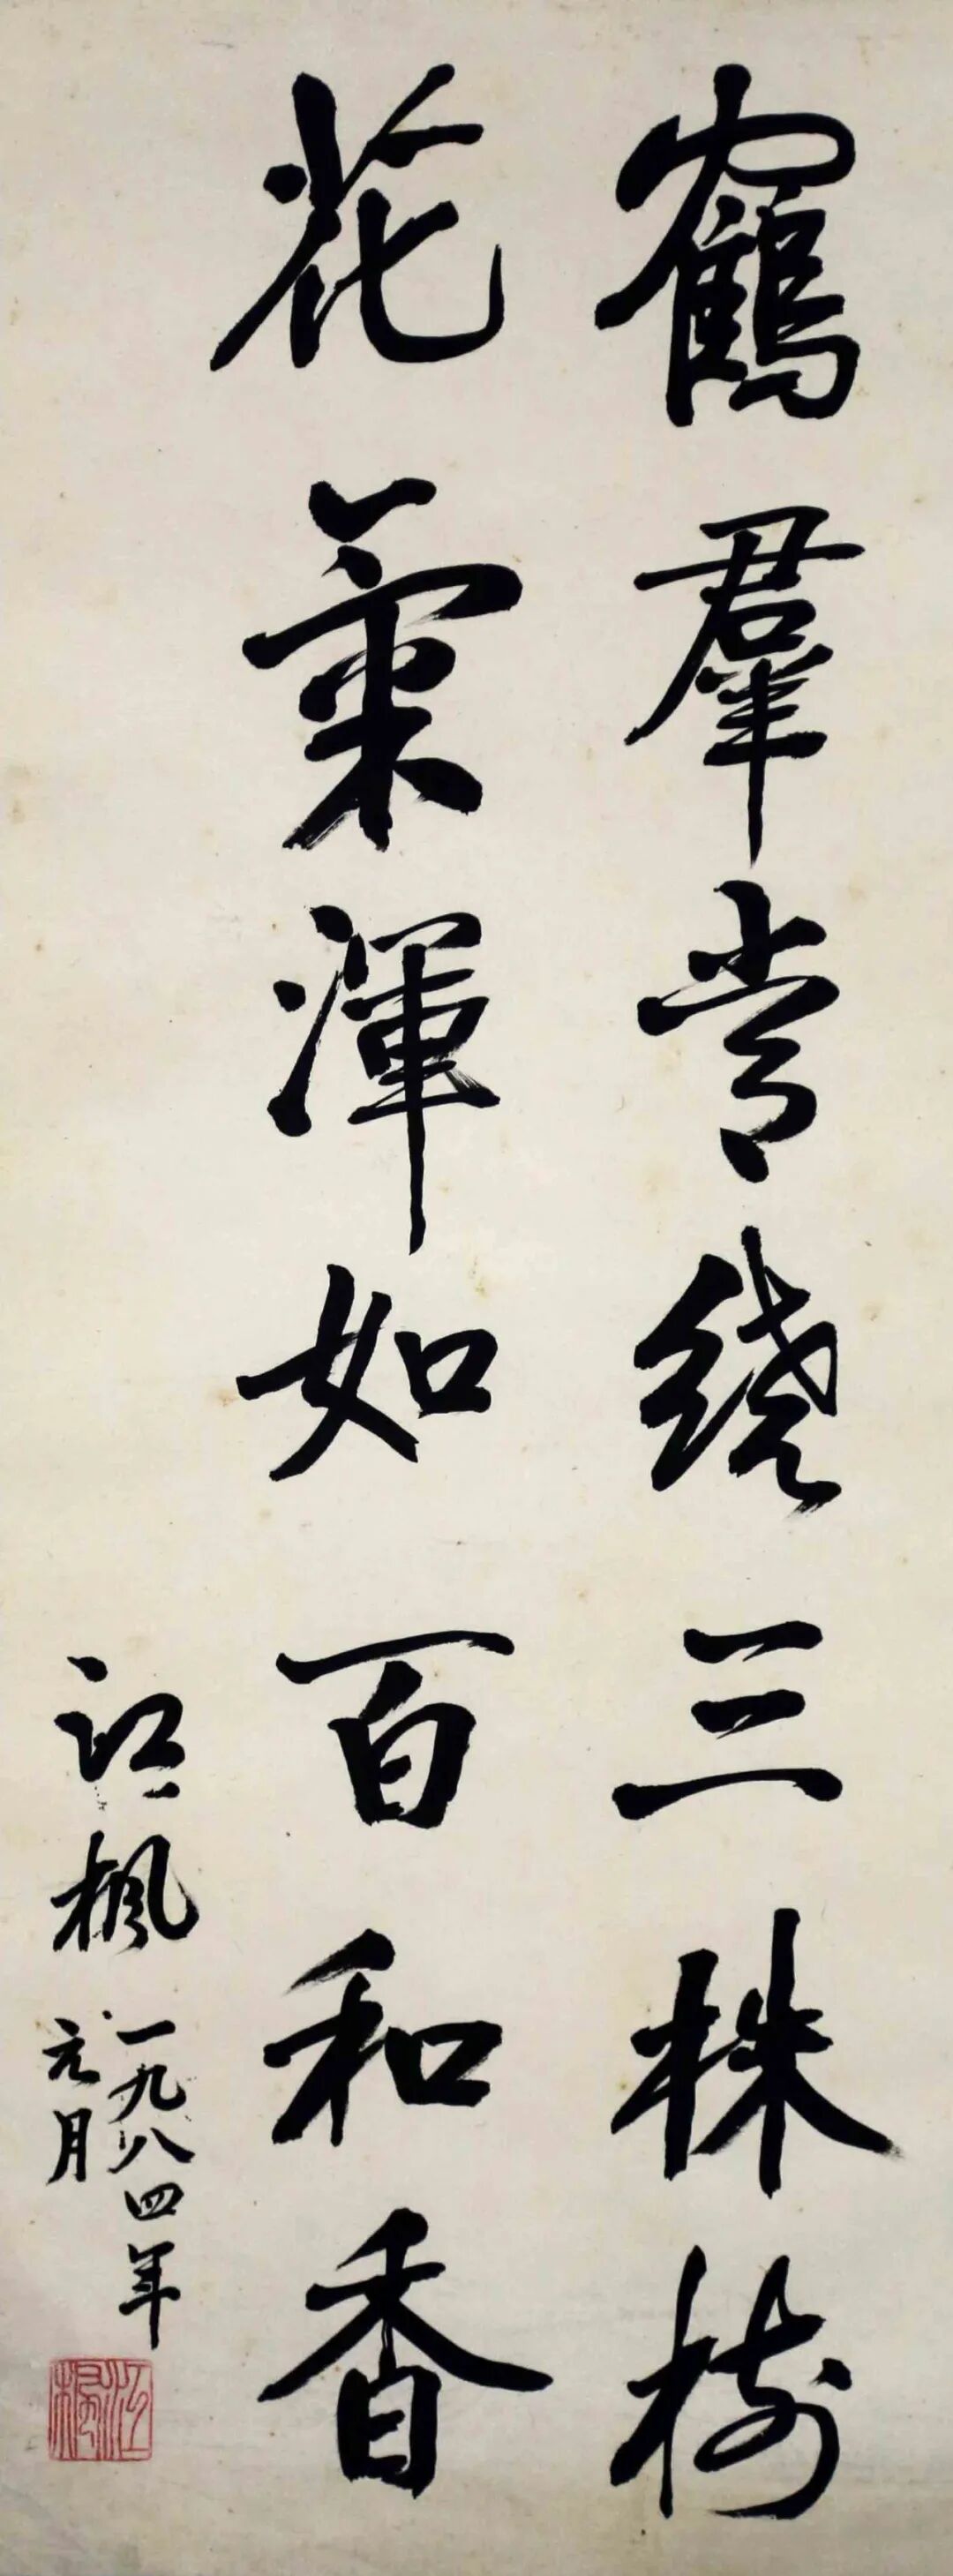 鶴羣常繞三株樹
花氣渾如百和香
江楓
一九八四年
元月
江楓